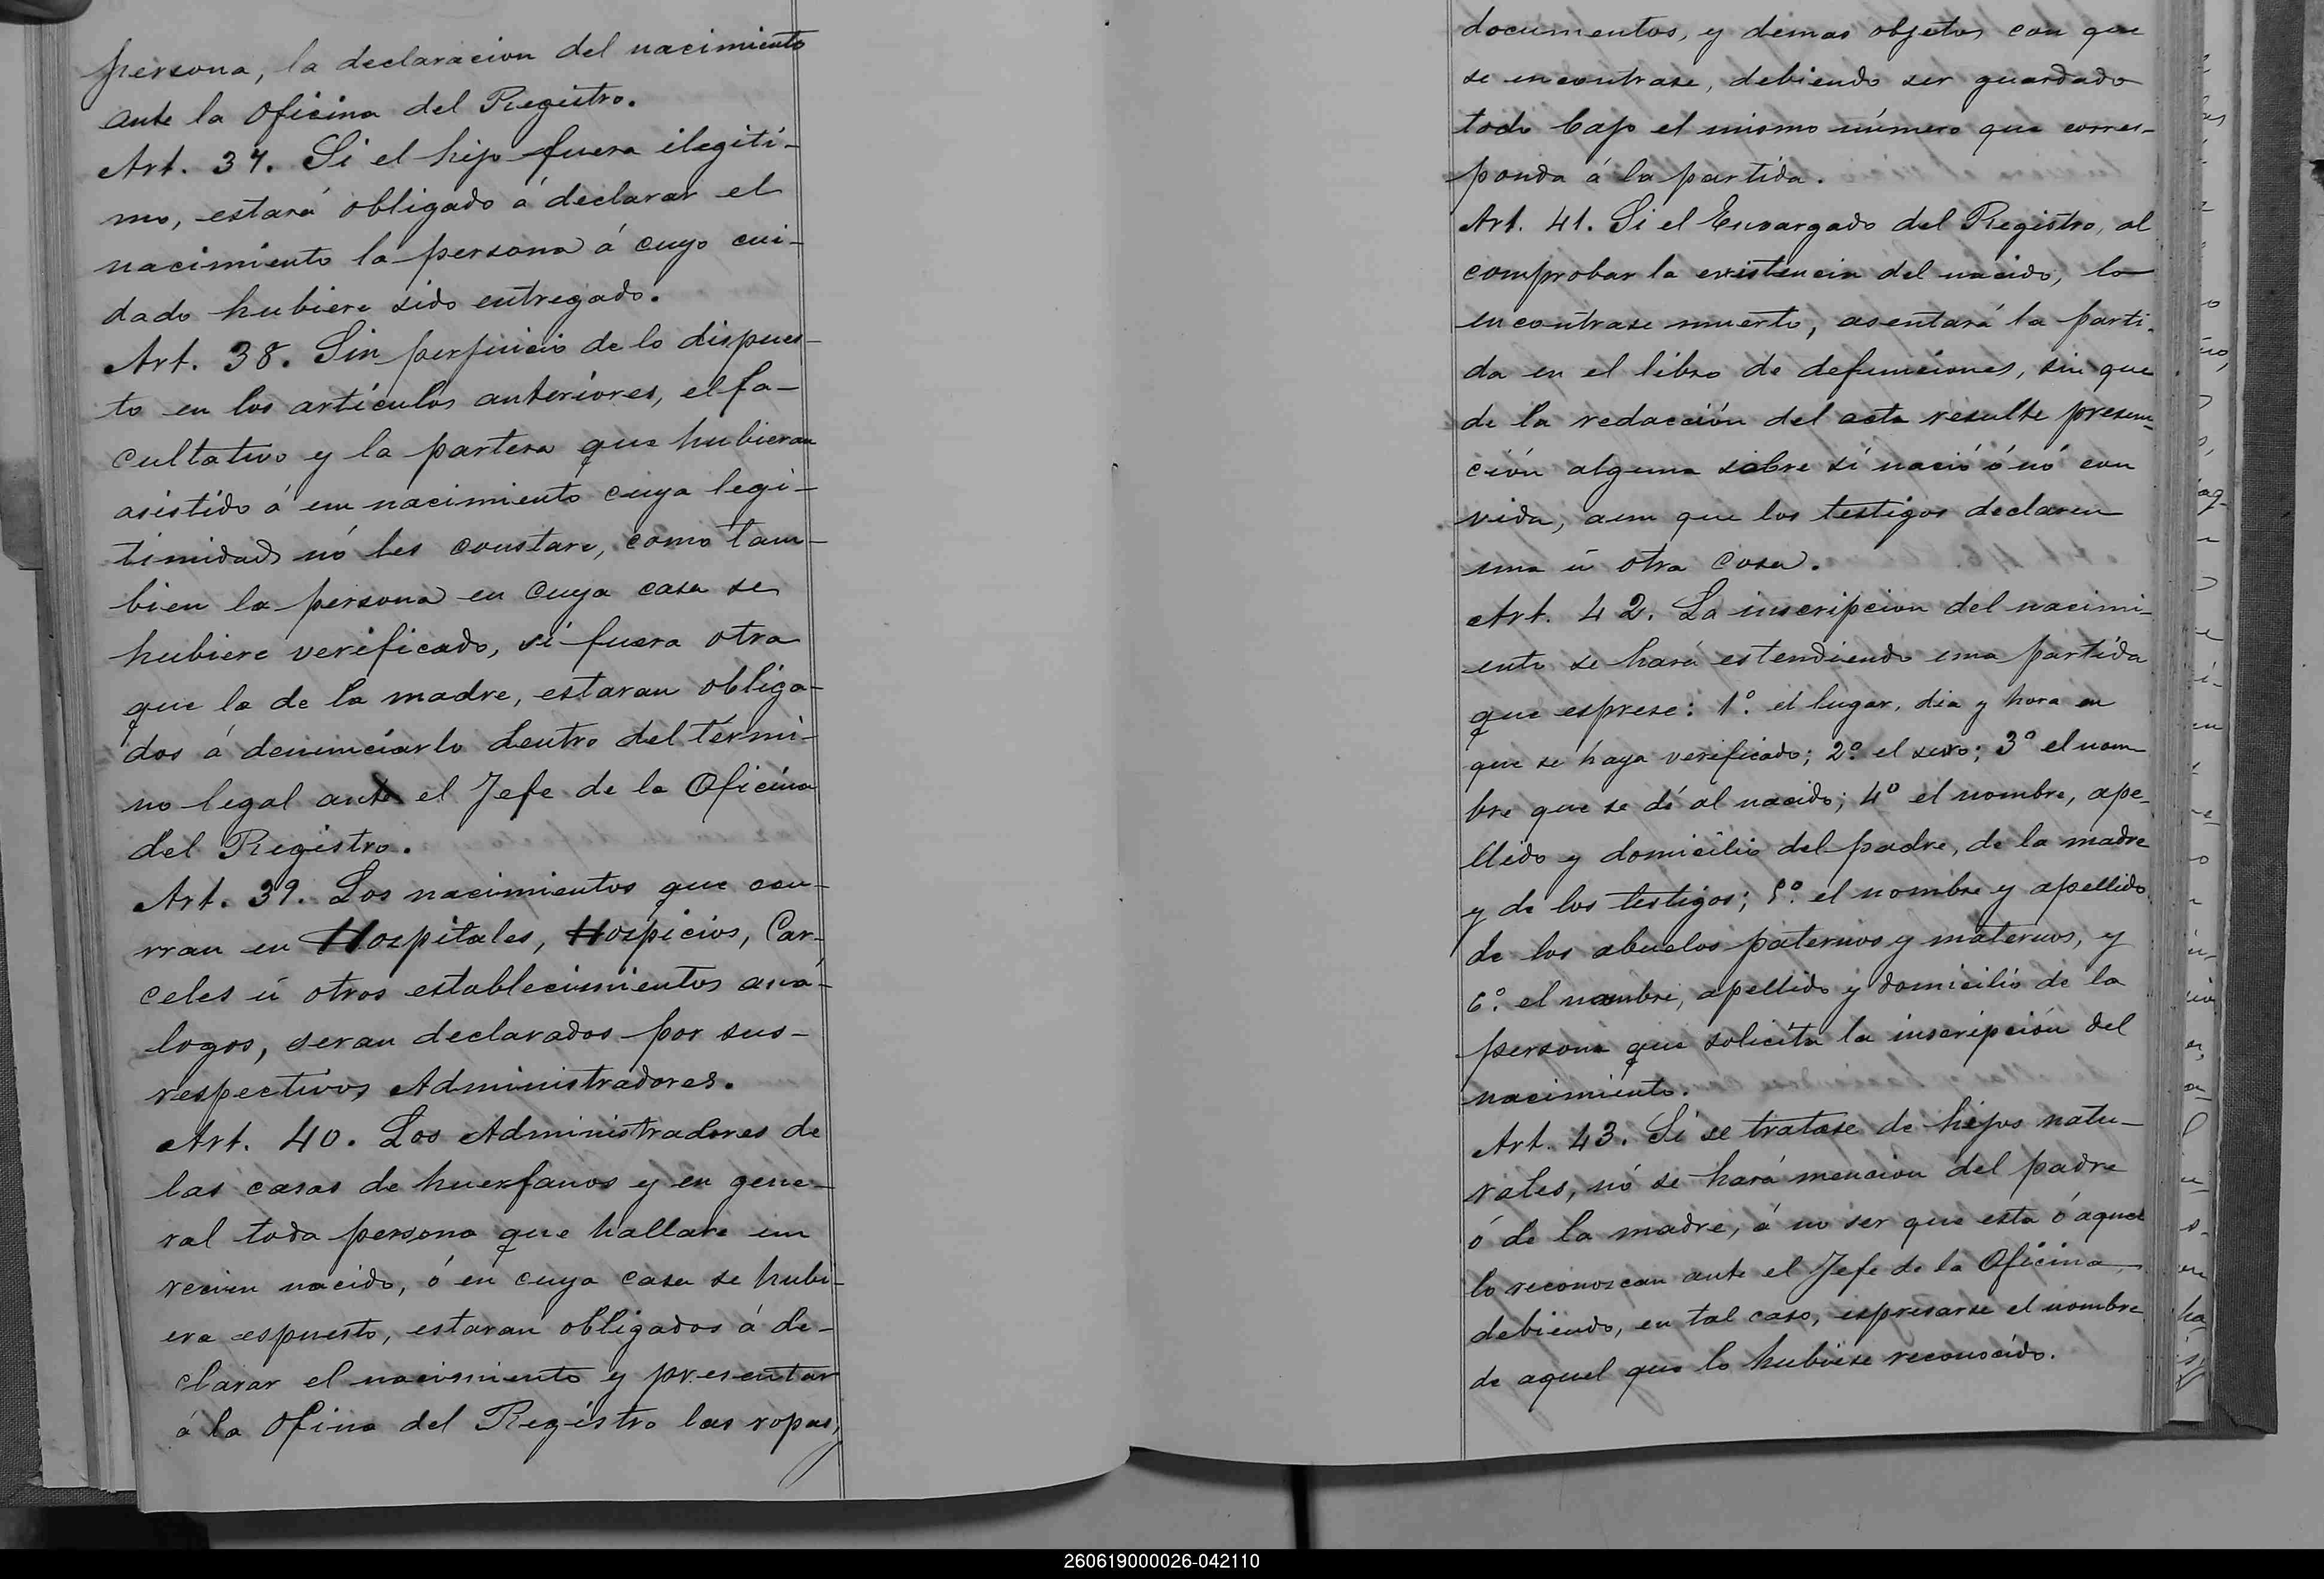 persona, la declaracion del nacimiento
ante la Oficina del Registro.
Art. 37. Si el hijo fuera ilegiti-
mo, estará obligado á declarar el
nacimiento la persona á cuyo cui-
dado hubiere sido entregado.
Art. 38. Sin perjuicio de lo dispues-
to en los artículos anteriores, el fa-
cultativo y la partera que hubieran
asistido á un nacimiento cuya legi-
timidad nó les constare, como tam-
bien la persona en cuya casa se
hubiere verificado, si fuera otra
que la de la madre, estaran obliga-
dos á denunciarlo dentro del térmi-
no legal ante el Jefe de la Oficina
del Registro.
Art. 39. Los nacimientos que ocu-
rran en Hospitales, Hospicios, Car-
celes ú otros establecimientos aná-
logos, seran declarados por sus-
respectivos Administradores.
Art. 40. Los Administradores de
las casas de huerfanos y en gene-
ral toda persona que hallare un
recien nacido, ó en cuya casa se hubi-
era espuesto, estaran obligados á de-
clarar el nacimiento y presentar
á la Ofina del Registro las ropas,
documentos, y demas objetos con que
se encontrase, debiendo ser guardado
todo bajo el mismo número que corres-
ponda á la partida.
Art. 41. Si el Encargado del Registro, al
comprobar la existencia del nacido, lo
encontrase muerto, asentará la parti-
da en el libro de defunciones, sin que
de la redacción del acta resulte presun-
ción alguna sobre si nació ó nó con
vida, aun que los testigos declaren
una ú otra cosa.
Art. 42. La inscripcion del nacimi-
ento se hará estendiendo una partida
que esprese: 1º. el lugar, dia y hora en
que se haya verificado; 2º. el sexo; 3º el nom-
bre que se dé al nacido; 4º el nombre, ape-
llido y domicilio del padre, de la madre
y de los testigos; 5º. el nombre y apellido
de los abuelos paternos y maternos, y
6º. el nombre, apellido y domicilio de la
persona que solicita la inscripción del
nacimiento.
Art. 43. Si se tratase de hijos natu-
rales, nó se hará mencion del padre
ó de la madre, á no ser que esta ó aquel
lo reconoscan ante el Jefe de la Oficina
debiendo, en tal caso, espresarse el nombre
de aquel que lo hubiese reconocido.
260619000026-042110